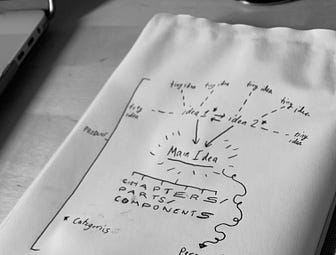 tiny idea
tiny idea
tiny idea
tiny idea
tiny idea
idea 1
idea 2
tiny idea
PRODUCT
Main Idea
CHAPTERS/
PARTS/
COMPONENTS
* Categories